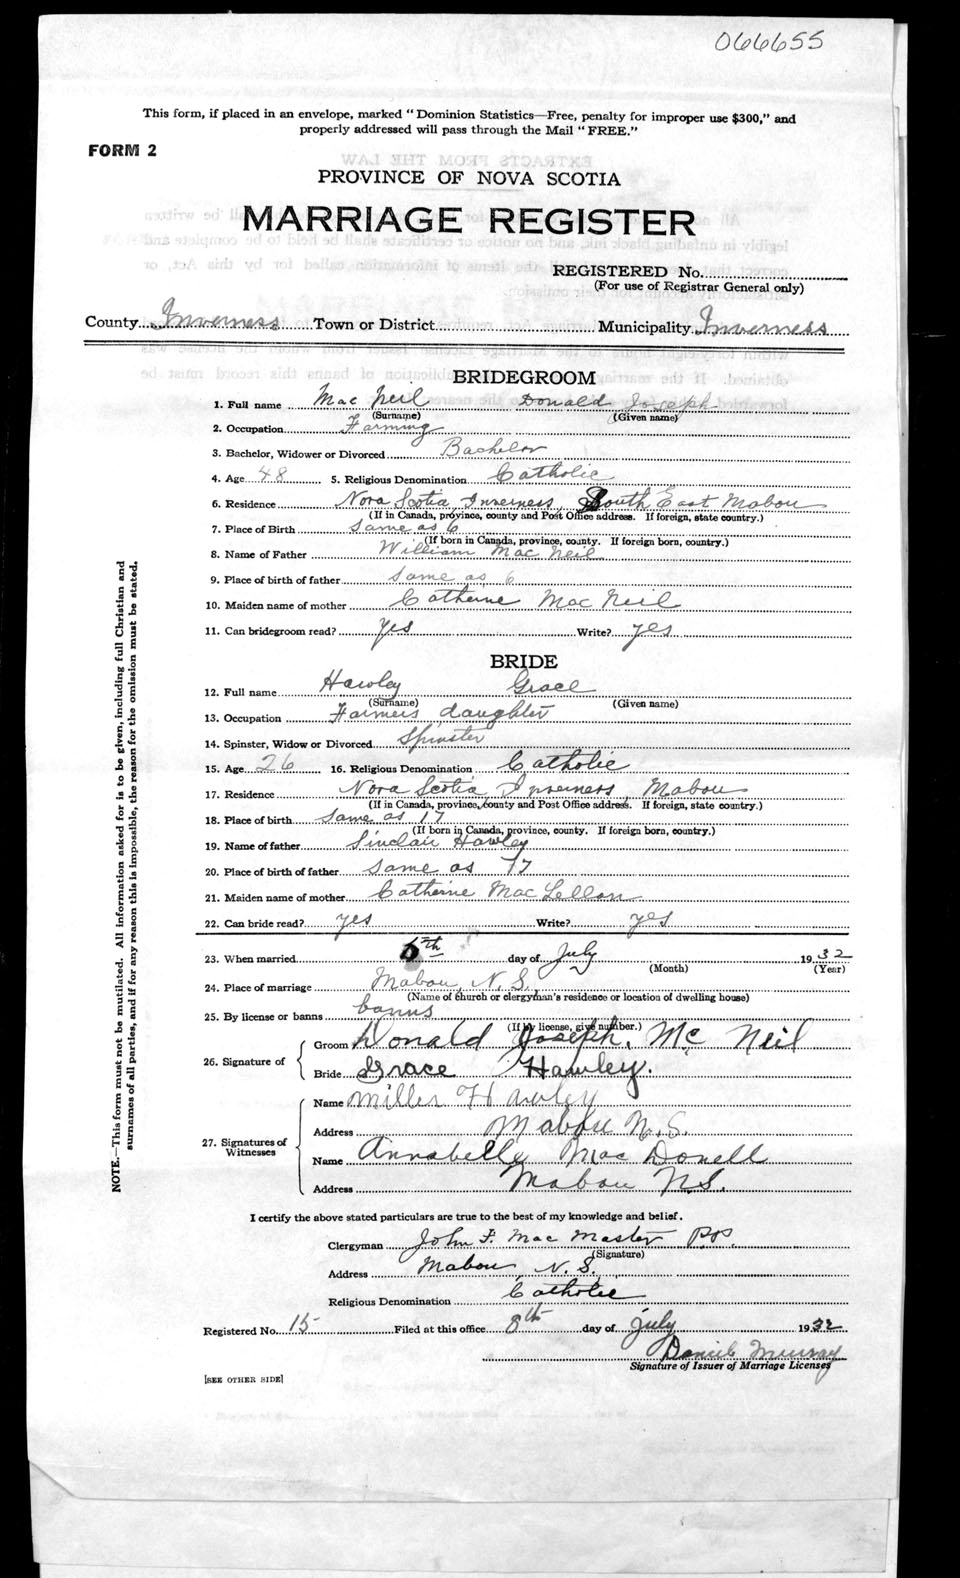 066655
This form, if placed in an envelope, marked "Dominion Statistics—Free, penalty for improper use $300," and
properly addressed will pass through the Mail "FREE."
FORM 2
PROVINCE OF NOVA SCOTIA
MARRIAGE REGISTER
REGISTERED No.
(For use of Registrar General only)
County Inverness Town or District Municipality Inverness
BRIDEGROOM
1. Full name Mac Neil Donald Joseph
(Surname) (Given name)
2. Occupation Farming
3. Bachelor, Widower or Divorced Bachelor
4. Age 48 5. Religious Denomination Catholic
6. Residence Nova Scotia Inverness, South East Mabou
(If in Canada, province, county and Post Office address. If foreign, state country.)
7. Place of Birth same as 6
(If born in Canada, province, county. If foreign born, country.)
8. Name of Father William Mac Neil
9. Place of birth of father same as 6
10. Maiden name of mother Catherine Mac Neil
11. Can bridegroom read? yes Write? yes
BRIDE
12. Full name Hawley Grace
(Surname) (Given name)
13. Occupation Farmers daughter
14. Spinster, Widow or Divorced Spinster
15. Age 26 16. Religious Denomination Catholic
17. Residence Nova Scotia Inverness, Mabou
(If in Canada, province, county and Post Office address. If foreign, state country.)
18. Place of birth same as 17
(If born in Canada, province, county. If foreign born, country.)
19. Name of father Sinclair Hawley
20. Place of birth of father same as 17
21. Maiden name of mother Catherine Mac Lellan
22. Can bride read? yes Write? yes
23. When married 6th day of July 1932
(Month) (Year)
24. Place of marriage Mabou, N.S.
(Name of church or clergyman's residence or location of dwelling house)
25. By license or banns banns
(If by license, give number.)
26. Signature of
Groom Donald Joseph, Mc Neil
Bride Grace Hawley.
27. Signatures of Witnesses
Name Miller Hawley
Address Mabou N.S.
Name Annabelle Mac Donell
Address Mabou N.S.
I certify the above stated particulars are true to the best of my knowledge and belief.
Clergyman John F. Mac Master P.P.
(Signature)
Address Mabou, N.S.
Religious Denomination Catholic
Registered No. 15 Filed at this office 8th day of July 1932
Daniel Murray
Signature of Issuer of Marriage Licenses
[SEE OTHER SIDE]
NOTE.—This form must not be mutilated. All information asked for is to be given, including full Christian and
surnames of all parties, and if for any reason this is impossible, the reason for the omission must be stated.